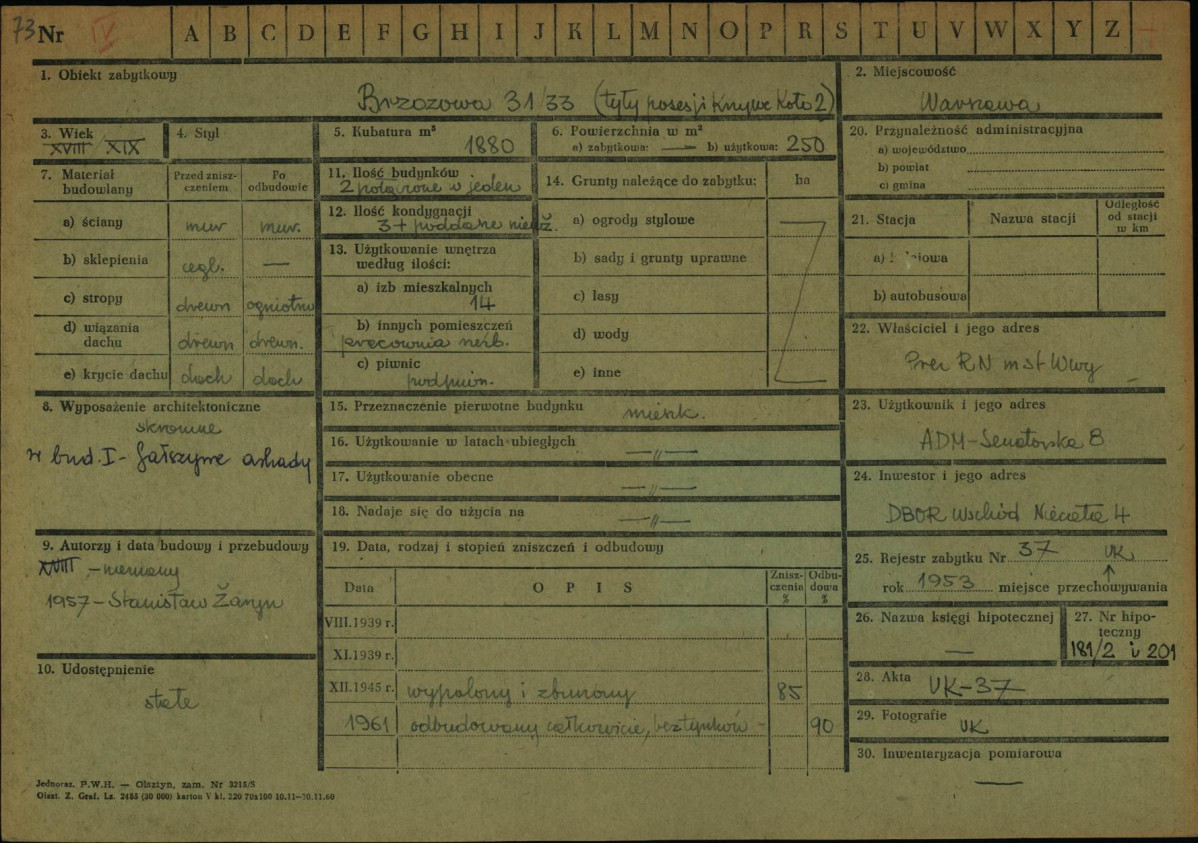 73 Nr IV A B C D E F G H I J K L M N O P R S T U V W X Y Z
1. Obiekt zabytkowy
Brzozowa 31/33 (tyły posesji Krzywe Koło 2)
2. Miejscowość
Warszawa
3. Wiek
XVIII/XIX
4. Styl
5. Kubatura m³
1880
6. Powierzchnia w m²
a) zabytkowa: — b) użytkowa: 250
20. Przynależność administracyjna
a) województwo
b) powiat
c) gmina
7. Materiał budowlany
Przed zniszczeniem
Po odbudowie
a) ściany mur mur.
b) sklepienia cegl. —
c) stropy drewn ogniotrw
d) wiązania dachu drewn drewn.
e) krycie dachu dach dach
11. Ilość budynków
2 połączone w jeden
12. Ilość kondygnacji
3 + poddasze nieuż.
13. Użytkowanie wnętrza według ilości:
a) izb mieszkalnych
14
b) innych pomieszczeń
pracownia rzeźb.
c) piwnic
podpiwn.
14. Grunty należące do zabytku: ha
a) ogrody stylowe
b) sady i grunty uprawne
c) lasy
d) wody
e) inne
21. Stacja Nazwa stacji Odległość od stacji w km
b) autobusowa
22. Właściciel i jego adres
Prez RN m st Wwy
8. Wyposażenie architektoniczne
skromne
w bud. I - fałszywe arkady
15. Przeznaczenie pierwotne budynku mieszk.
16. Użytkowanie w latach ubiegłych
—〃—
17. Użytkowanie obecne
—〃—
18. Nadaje się do użycia na
—〃—
23. Użytkownik i jego adres
ADM - Senatorska 8
24. Inwestor i jego adres
DBOR Wschód Niecała 4
9. Autorzy i data budowy i przebudowy
XVIII - nieznany
1957 - Stanisław Żaryn
10. Udostępnienie
stałe
19. Data, rodzaj i stopień zniszczeń i odbudowy
Data OPIS Zniszczenia % Odbudowa %
VIII.1939 r.
XI.1939 r.
XII.1945 r. wypalony i zburzony 85
1961 odbudowany całkowicie, bez tynków - 90
25. Rejestr zabytku Nr 37 UK
rok 1953 miejsce przechowywania
26. Nazwa księgi hipotecznej
—
27. Nr hipoteczny
181/2 i 201
28. Akta UK-37
29. Fotografie UK
30. Inwentaryzacja pomiarowa
—
Jednoraz. P.W.H. — Olsztyn, zam. Nr 3215/S
Olszt. Z. Graf. Lz. 2455 (30 000) karton V kl. 220 70x100 10.11—30.11.60